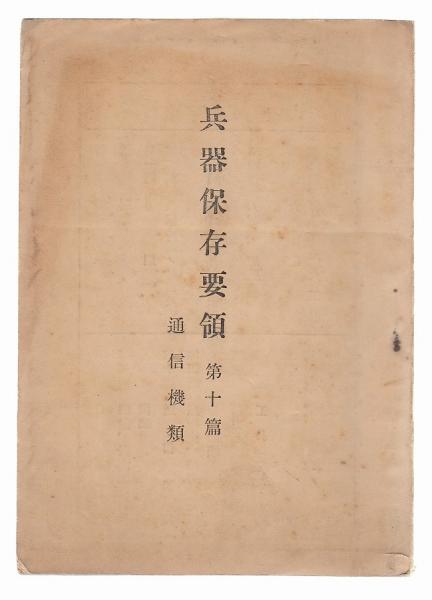 兵器保存要領 第十篇
通信機類